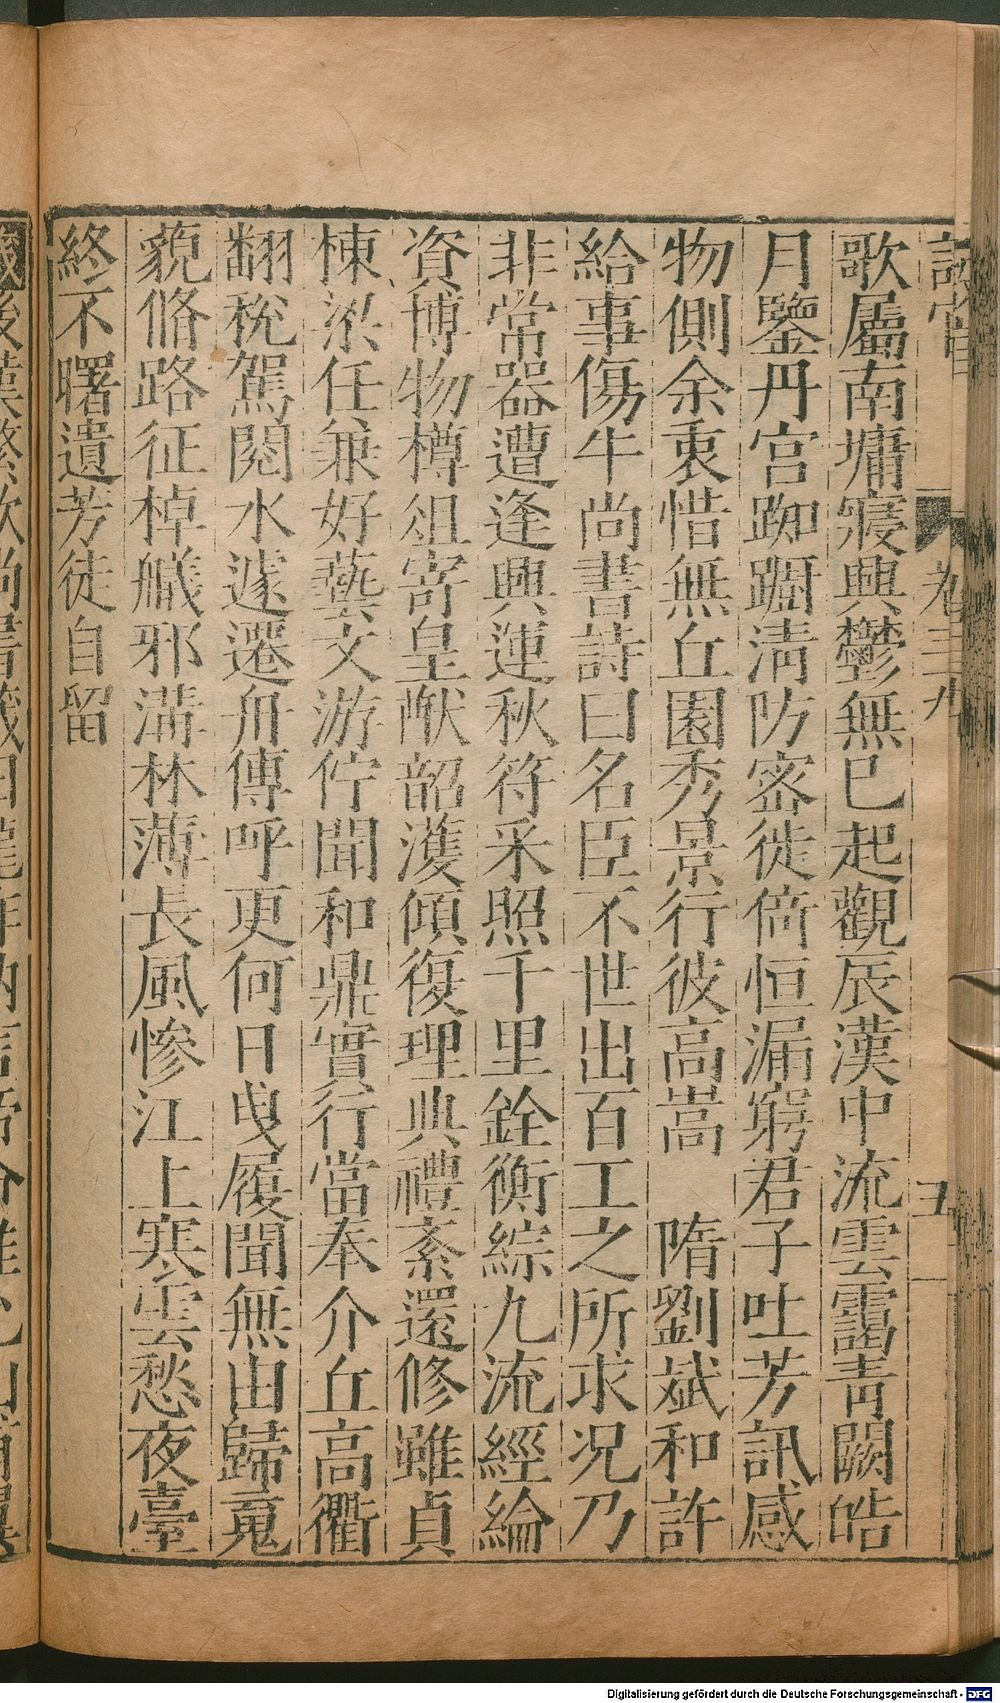 卷三九
五
歌屬南墉寢興鬱無已起觀辰漢中流雲靄青闕皓
月鑒丹宮踟躕清防密徙倚恒漏窮君子吐芳訊感
物側余衷惜無丘園秀景行彼高嵩　隋劉斌和許
給事傷牛尚書詩曰名臣不世出百工之所求况乃
非常器遭逢興運秋符采照千里銓衡綜九流經綸
資博物樽俎寄皇猷韶濩傾復理典禮紊還修雖貞
棟梁任兼好藝文游佇聞和鼎實行當奉介丘高衢
翻稅駕閱水遽遷舟傳呼更何日曳履聞無由歸䰟
藐脩路征棹艤邪溝林薄長風慘江上寒雲愁夜臺
終不曙遺芳徒自留
Digitalisierung gefördert durch die Deutsche Forschungsgemeinschaft - DFG